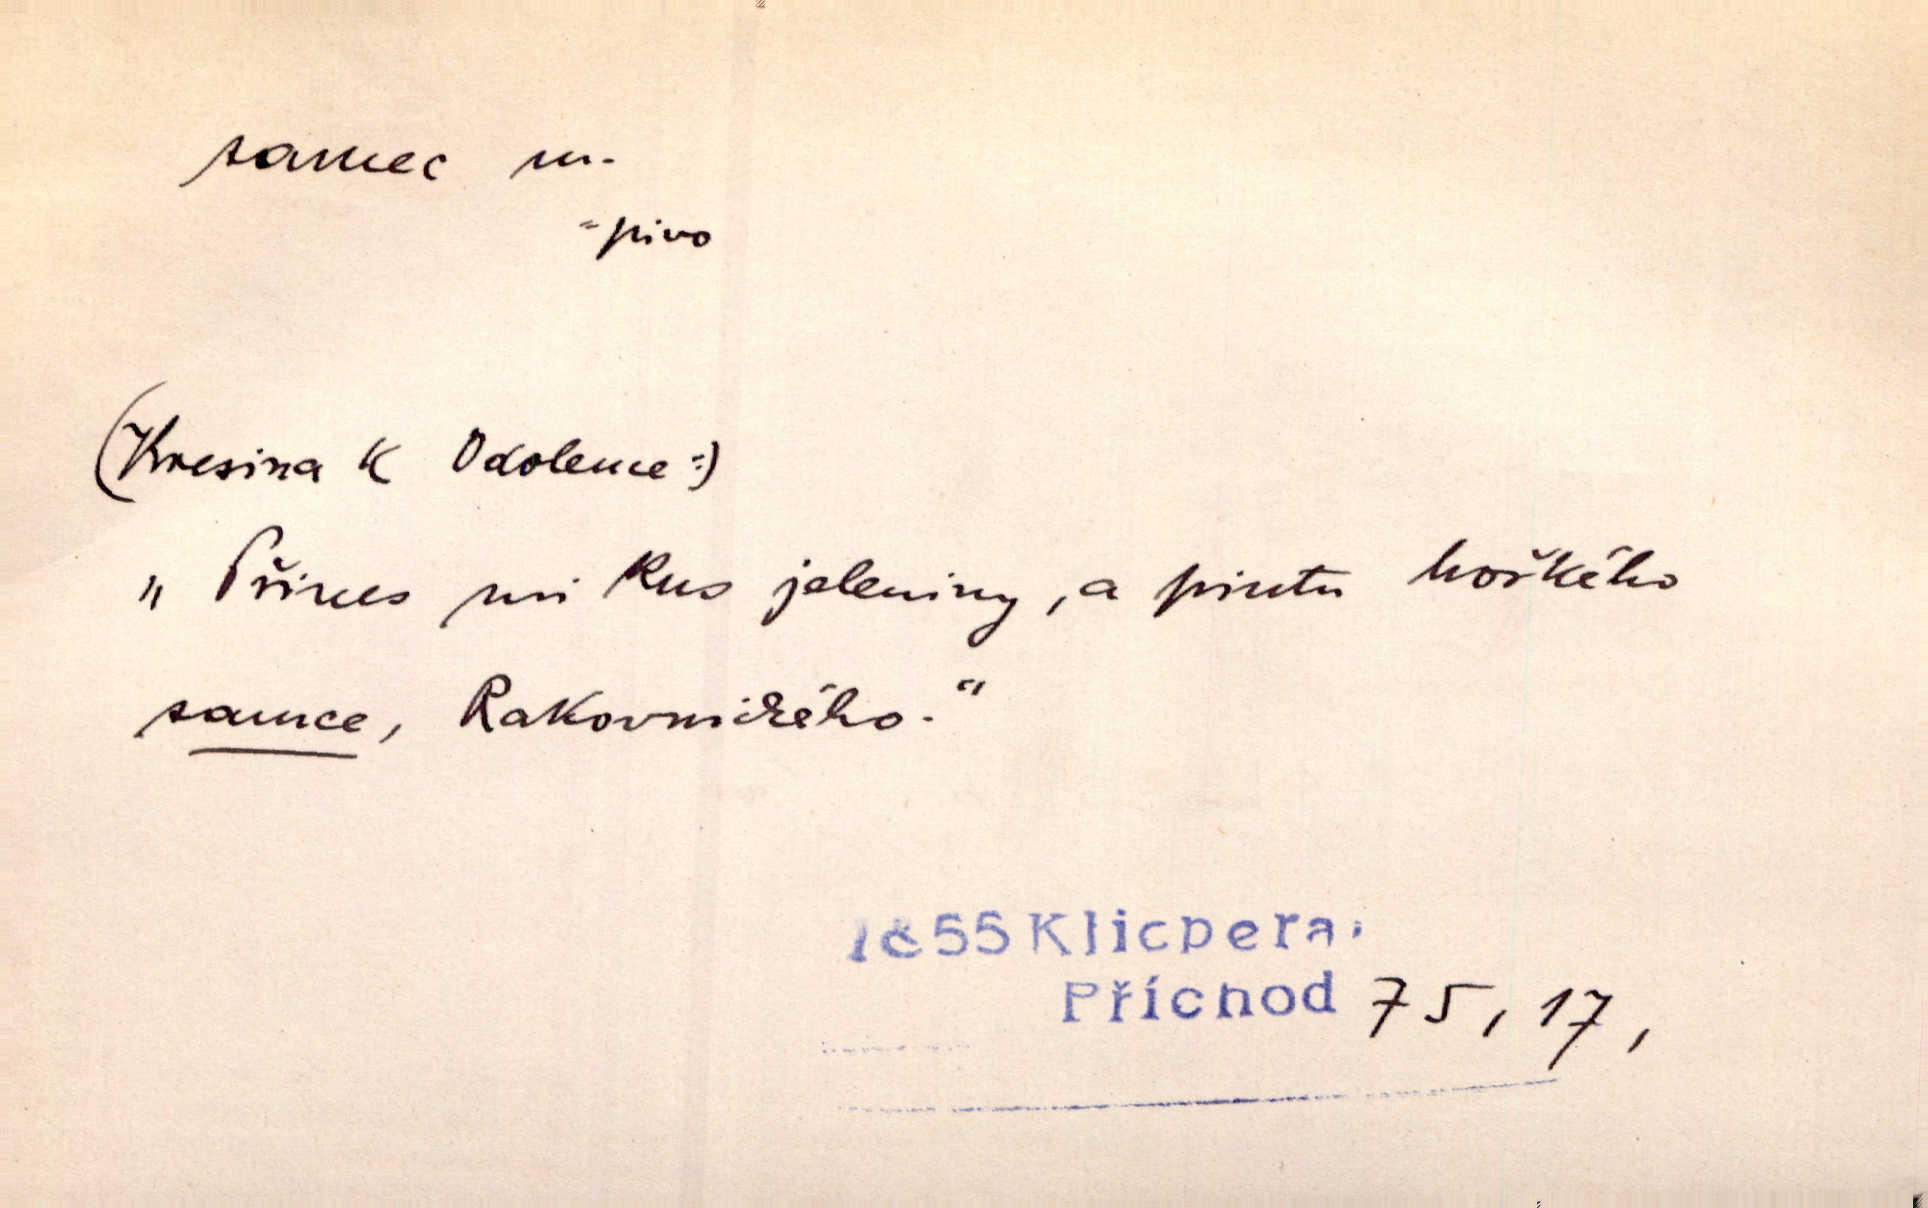 samec m.
= pivo
(Kresina k Odolence:)
„Přines mi kus jeleniny, a pintu hořkého
samce, Rakovnického."
1855 Klicpera,
Příchod 75, 17,